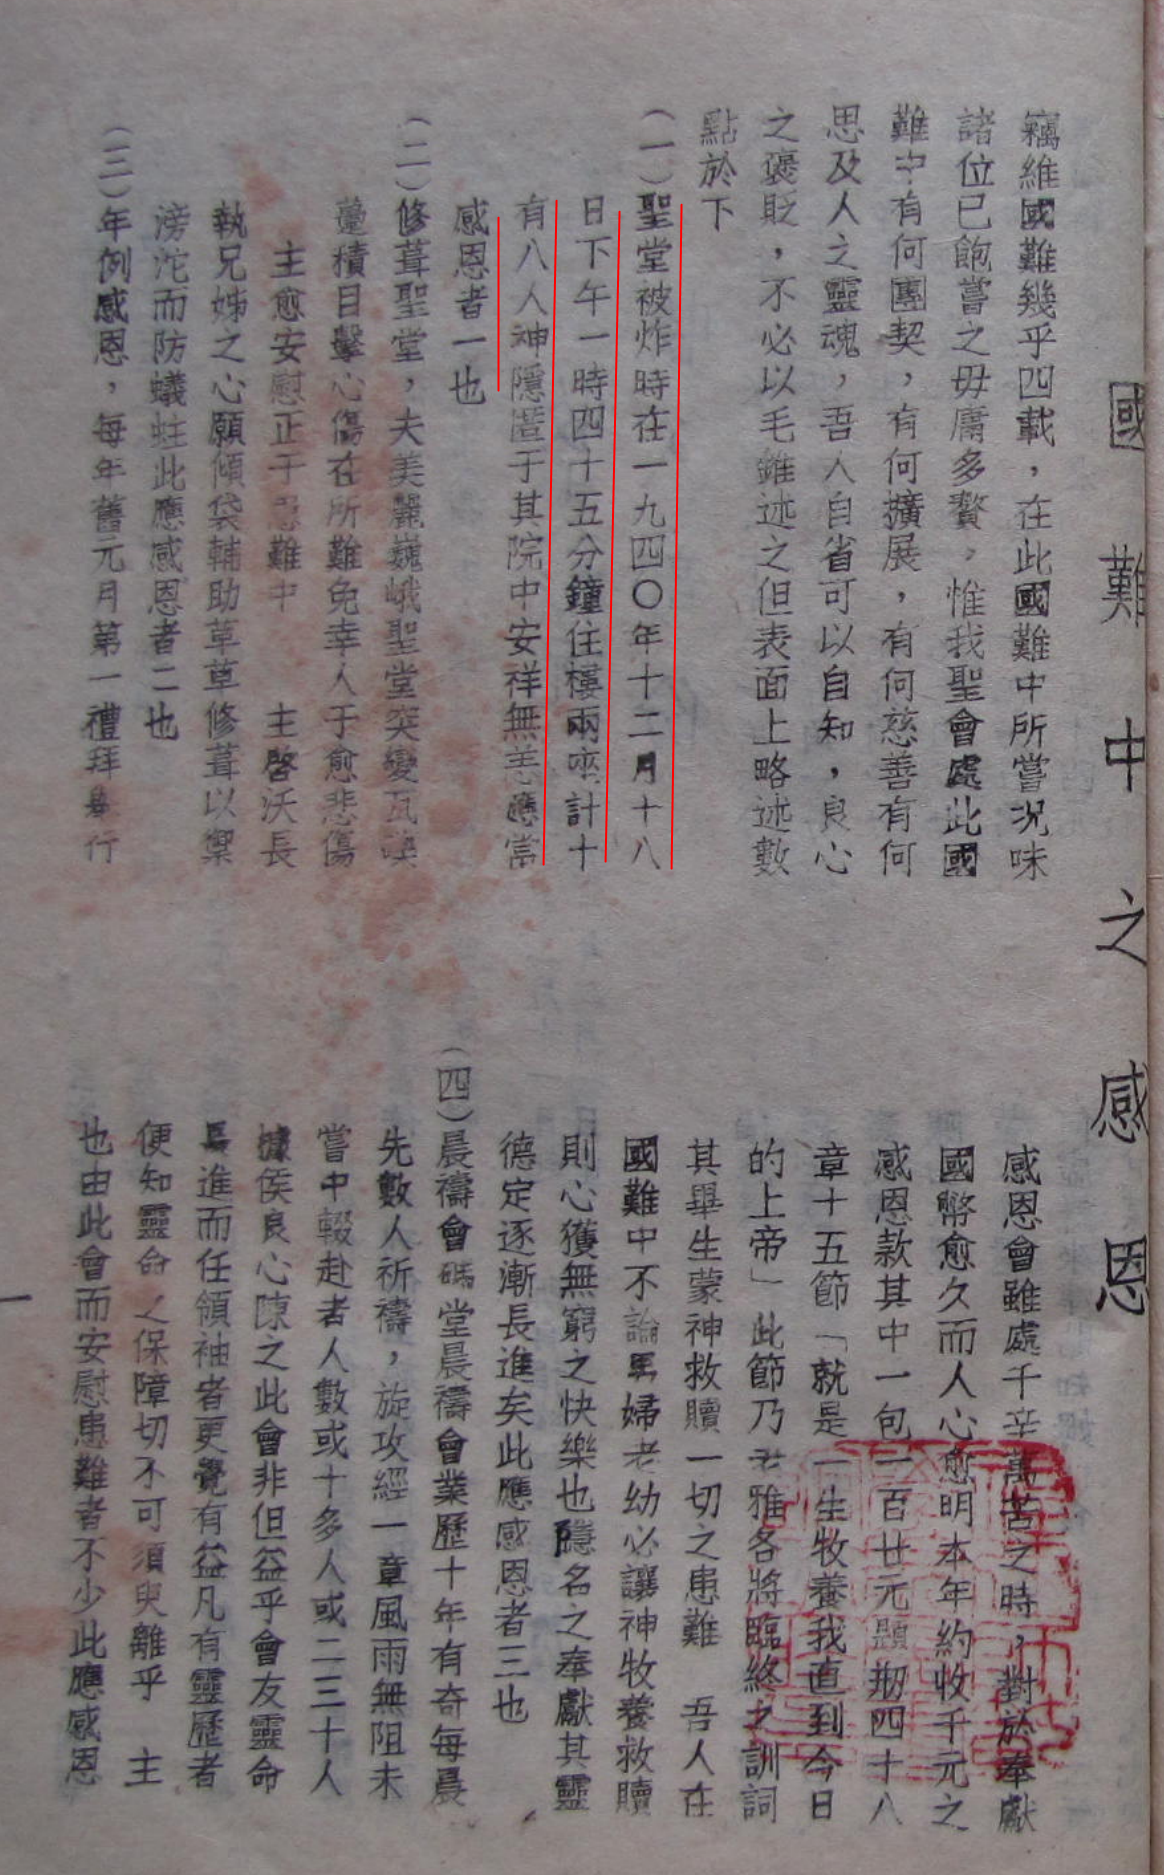 國難中之感恩
竊維國難幾乎四載，在此國難中所嘗況味
諸位已飽嘗之毋庸多贅，惟我聖會處此國
難中有何團契，有何擴展，有何慈善有何
思及人之靈魂，吾人自省可以自知，良心
之褒貶，不必以毛錐述之但表面上略述數
點於下
(一)聖堂被炸時在一九四〇年十二月十八
日下午一時四十五分鐘住樓兩座計十
有八人神隱匿于其院中安祥無恙應當
感恩者一也
(二)修葺聖堂，夫美麗巍峨聖堂突變瓦
積目擊心傷在所難免幸人于愈悲傷
主愈安慰正于難中 主啓沃長
執兄姊之心願傾袋輔助草草修葺以禦
滂沱而防蟻蛀此應感恩者二也
(三)年例感恩，每年舊元月第一禮拜舉行
感恩會雖處千辛萬苦之時，對於奉獻
國幣愈久而人心愈明本年約收千元之
感恩款其中一包一百廿元題期四十八
章十五節「就是一生牧養我直到今日
的上帝」此節乃雅各將臨終之訓詞
其畢生蒙神救贖一切之患難 吾人在
國難中不論男婦老幼必讓神牧養救贖
則心獲無窮之快樂也隱名之奉獻其靈
德定逐漸長進矣此應感恩者三也
(四)晨禱會碼堂晨禱會業歷十年有奇每晨
先數人祈禱，旋攻經一章風雨無阻未
嘗中輟赴者人數或十多人或二三十人
據侯良心陳之此會非但益乎會友靈命
長進而任領袖者更覺有益凡有靈歷者
便知靈命之保障切不可須臾離乎 主
也由此會而安慰患難者不少此應感恩
一